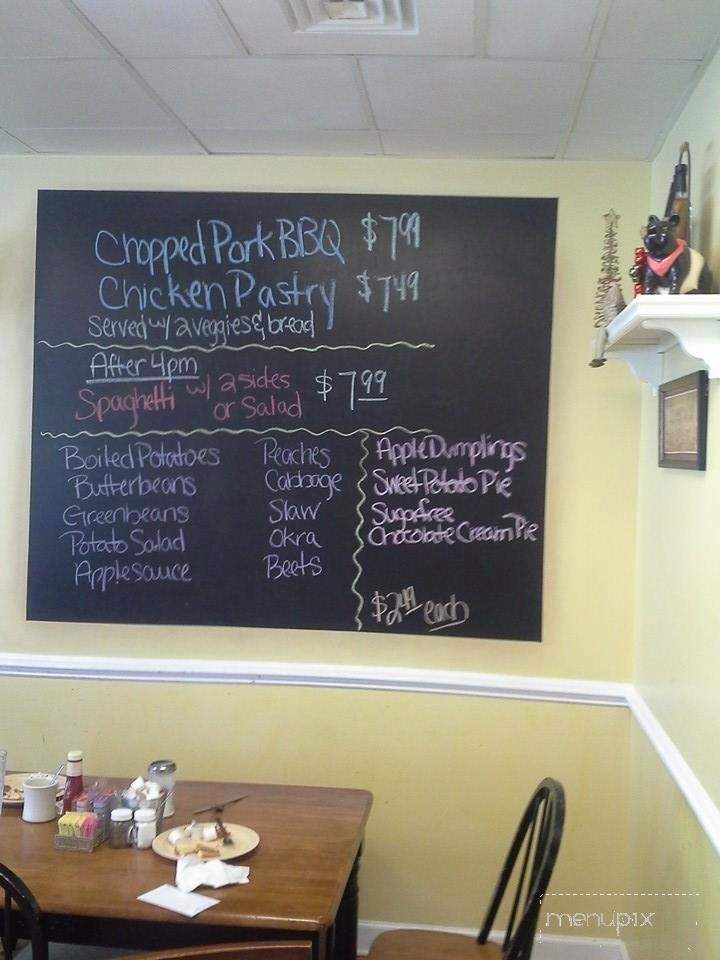 Chopped Pork BBQ $7.99
Chicken Pastry $7.49
Served w/ 2 veggies & bread
After 4pm
Spaghetti w/ 2 sides or Salad $7.99
Boiled Potatoes
Butterbeans
Greenbeans
Potato Salad
Applesauce
Peaches
Cabbage
Slaw
Okra
Beets
Apple Dumplings
Sweet Potato Pie
Sugarfree
Chocolate Cream Pie
$2.49 each
menupix